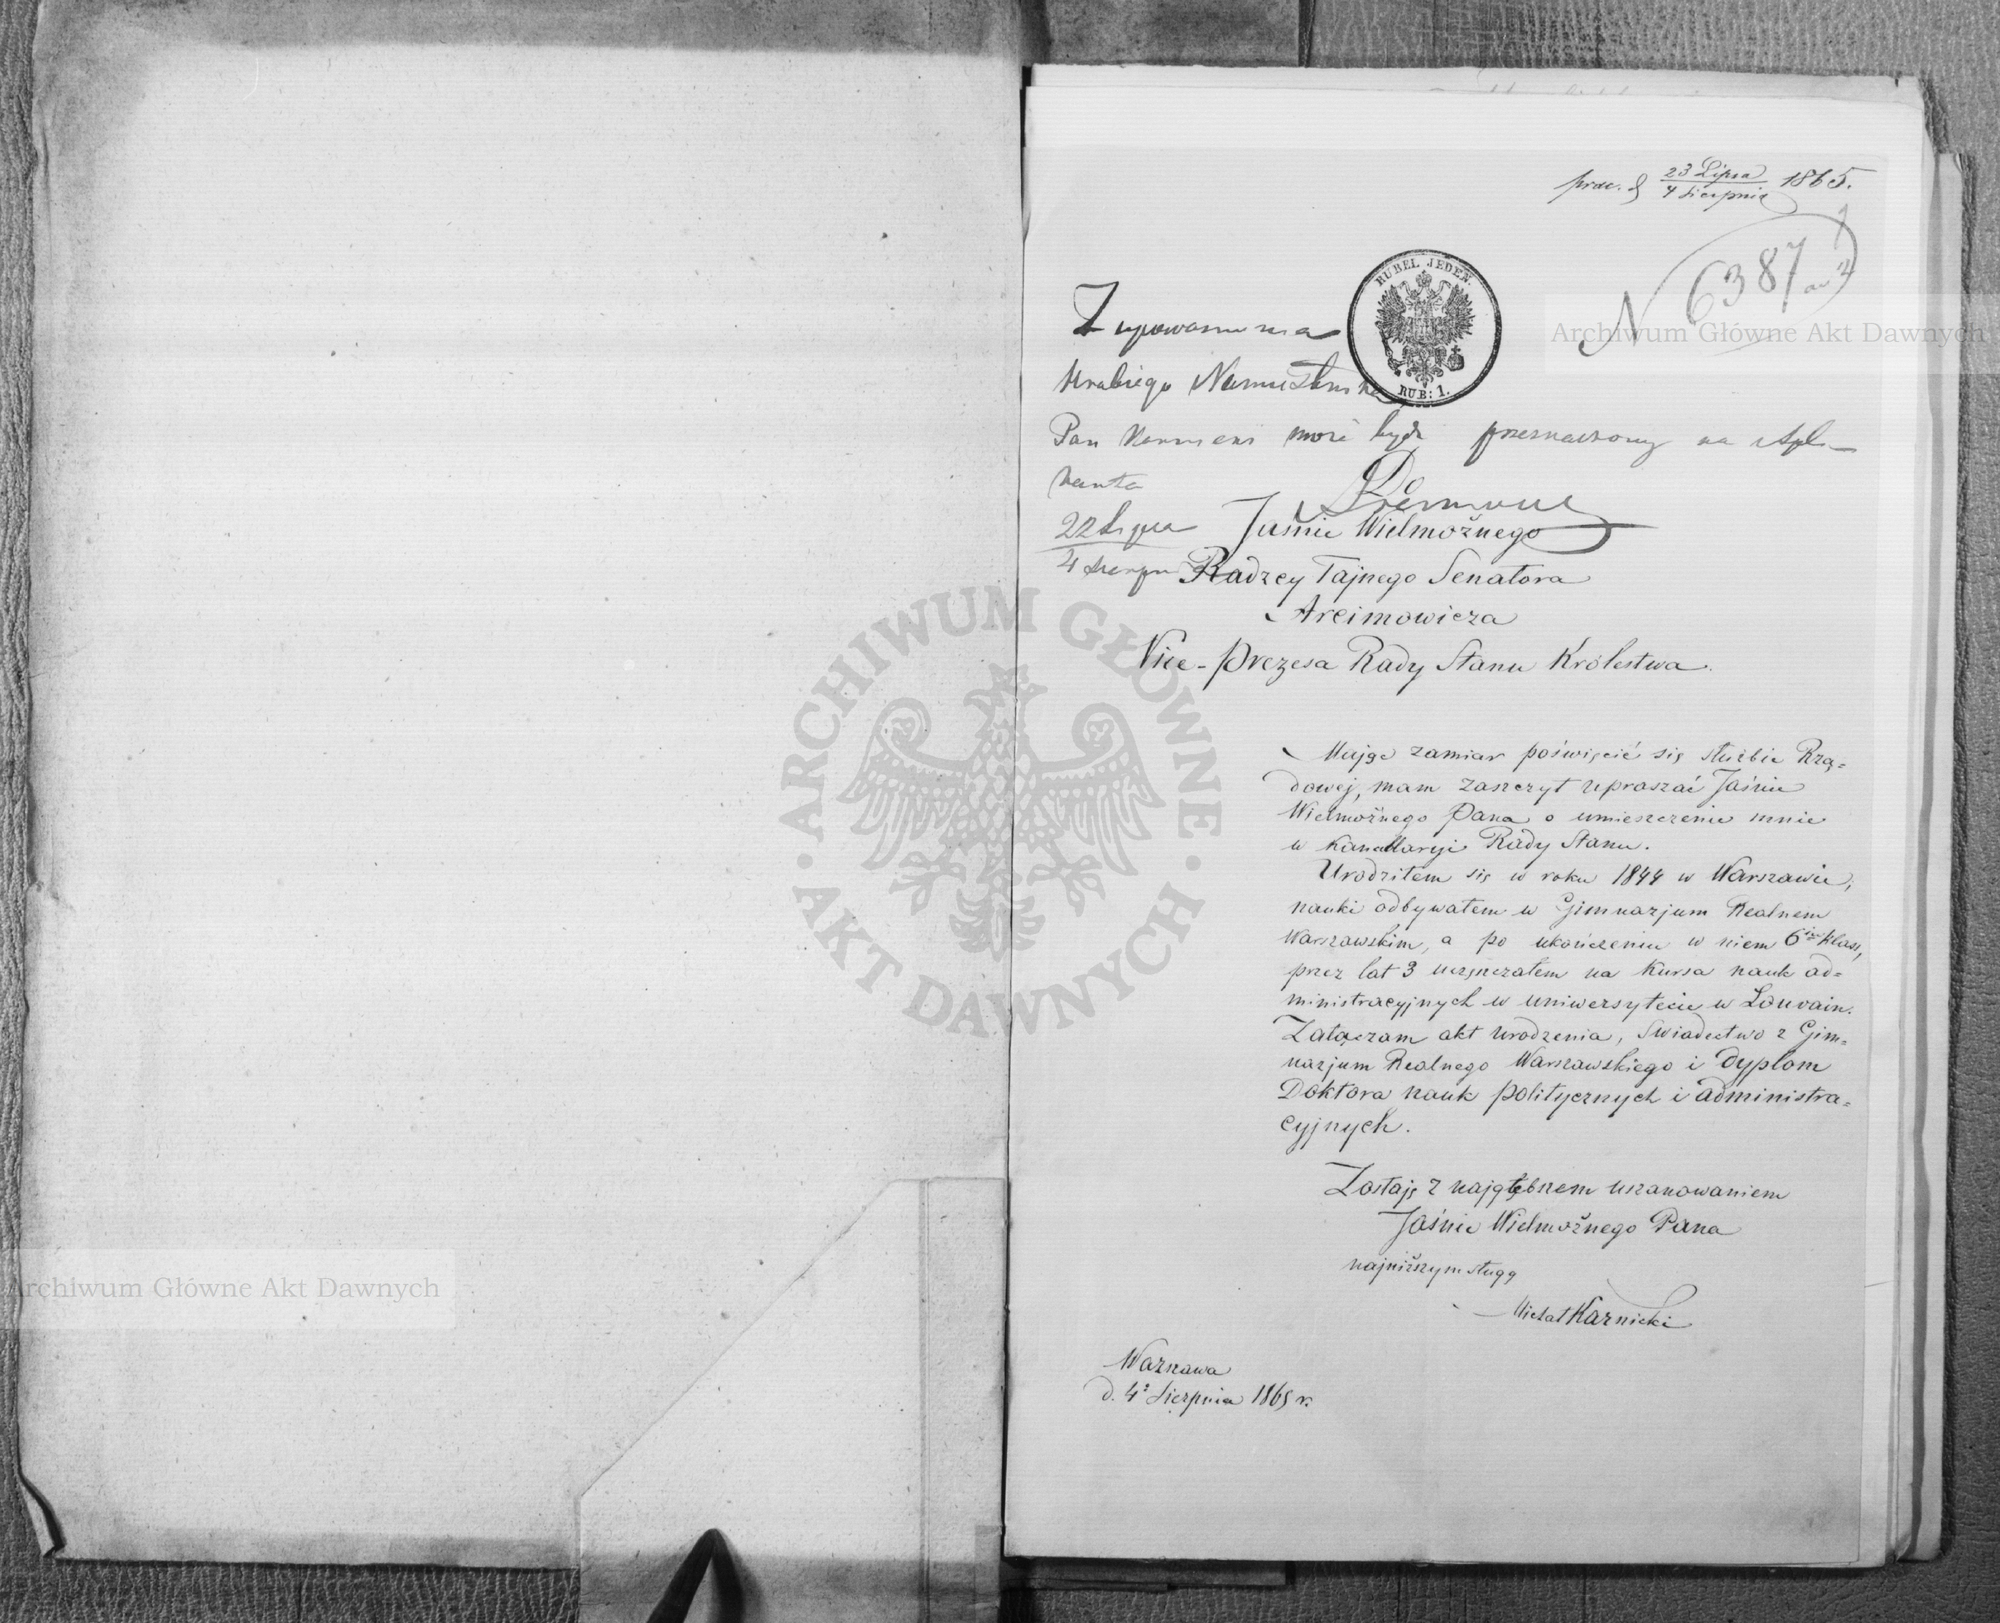 prae. d 23 Lipca / 4 Sierpnia 1865.
N 6387
RUBEL JEDEN.
RUB: 1.
Z upoważnienia
Hrabiego Namiestnika
Pan Karnicki może być przeznaczony na Apli-
kanta
22 Lipca / 4 Sierpnia
Jaśnie Wielmożnego
Radzcy Tajnego Senatora
Arcimowicza
Vice-Prezesa Rady Stanu Królestwa.
Mając zamiar poświęcić się służbie Rzą=
dowej, mam zaszczyt upraszać Jaśnie
Wielmożnego Pana o umieszczenie mnie
w Kancellaryi Rady Stanu.
Urodziłem się w roku 1844 w Warszawie,
nauki odbywałem w Gimnazjum Realnem
Warszawskim, a po ukończeniu w niem 6ciu klass,
przez lat 3 uczęszczałem na Kursa nauk ad=
ministracyjnych w uniwersytecie w Louvain.
Załączam akt urodzenia, świadectwo z Gim=
nazjum Realnego Warszawskiego i dyplom
Doktora nauk politycznych i administra=
cyjnych.
Zostaję z najgłębszem uszanowaniem
Jaśnie Wielmożnego Pana
najniższym sługą
Michał Karnicki
Warszawa
d. 4o Sierpnia 1865 r.
Archiwum Główne Akt Dawnych
ARCHIWUM GŁÓWNE AKT DAWNYCH
Archiwum Główne Akt Dawnych